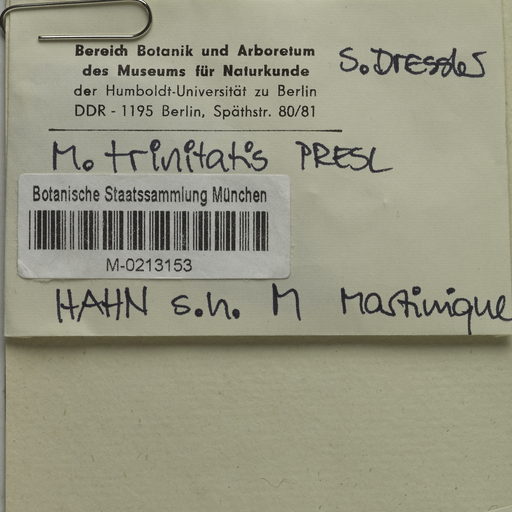 Bereich Botanik und Arboretum
des Museums für Naturkunde
der Humboldt-Universität zu Berlin
DDR - 1195 Berlin, Späthstr. 80/81
S. Dressler
M. trinitatis PRESL
Botanische Staatssammlung München
M-0213153
HAHN s.n. M Martinique